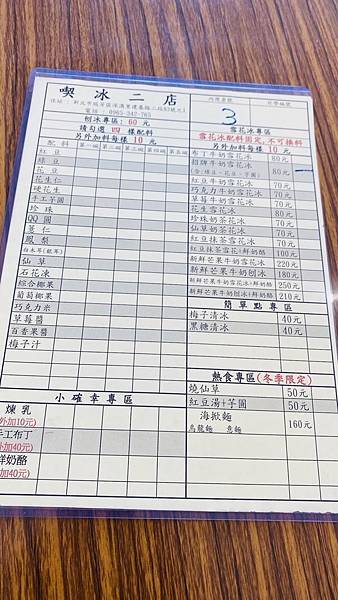 喫冰二店
電話:0965-342-765
內用桌號
3
刨冰專區:60 元
請勾選 四 樣配料
另外加料每樣 10 元
配料 第一碗 第二碗 第三碗 第四碗 第五碗
紅豆
綠豆
花豆
花生仁
硬花生
手工芋圓
珍珠
QQ圓
薏仁
鳳梨
白木耳(銀耳)
仙草
石花凍
綜合椰果
葡萄椰果
巧克力米
草莓醬
百香果醬
梅子汁
小確幸專區
煉乳
外加10元)
手工布丁
加40元)
鮮奶酪
加40元)
雪花冰專區
雪花冰配料固定,不可換料
另外加料每樣 10 元
布丁牛奶雪花冰 80元
招牌牛奶雪花冰 80元
(含:綠豆、花豆、芋圓)
紅豆牛奶雪花冰 70元
巧克力牛奶雪花冰 70元
草莓牛奶雪花冰 70元
花生牛奶雪花冰 70元
珍珠奶茶花冰 70元
仙草奶茶花冰 70元
紅豆抹茶雪花冰 70元
紅豆抹茶雪花冰+鮮奶酪 100元
新鮮芒果牛奶雪花冰+鮮奶酪 220元
新鮮芒果牛奶雪花冰 180元
新鮮芒果牛奶刨冰+鮮奶酪 250元
新鮮芒果牛奶刨冰 210元
簡單點專區
梅子清冰 40元
黑糖清冰 40元
熱食專區(冬季限定)
燒仙草 50元
紅豆湯+芋圓 50元
海掀麵 160元
烏龍麵 意麵